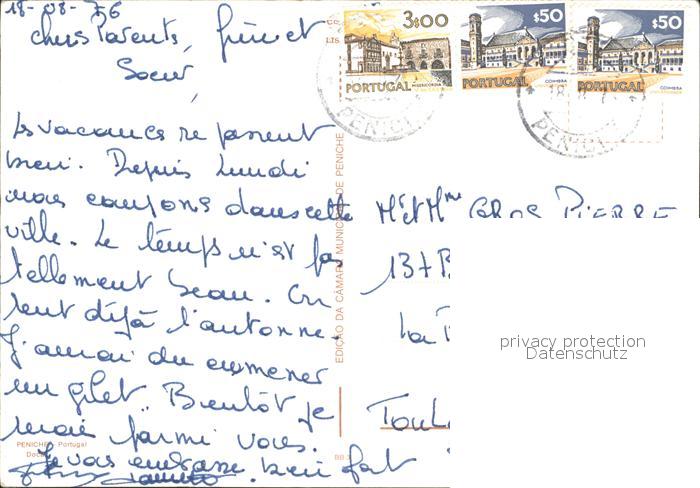 18-08-76
chers Parents, frère et
Soeur,
les vacances se passent
bien. Depuis lundi
nous campons dans cette
ville. Le temps n'est pas
tellement beau. On
sent déjà l'automne.
J'aurai du emmener
un gilet. Bientôt je
serai parmi vous.
Je vous embrasse bien fort
PENICHE Portugal
EDIÇÃO DA CÂMARA MUNICIPAL DE PENICHE
3$00
PORTUGAL
$50
PORTUGAL
COIMBRA
$50
PORTUGAL
COIMBRA
PENICHE
Mr et Mme GROS PIERRE
137 B
La
Toul
privacy protection
Datenschutz